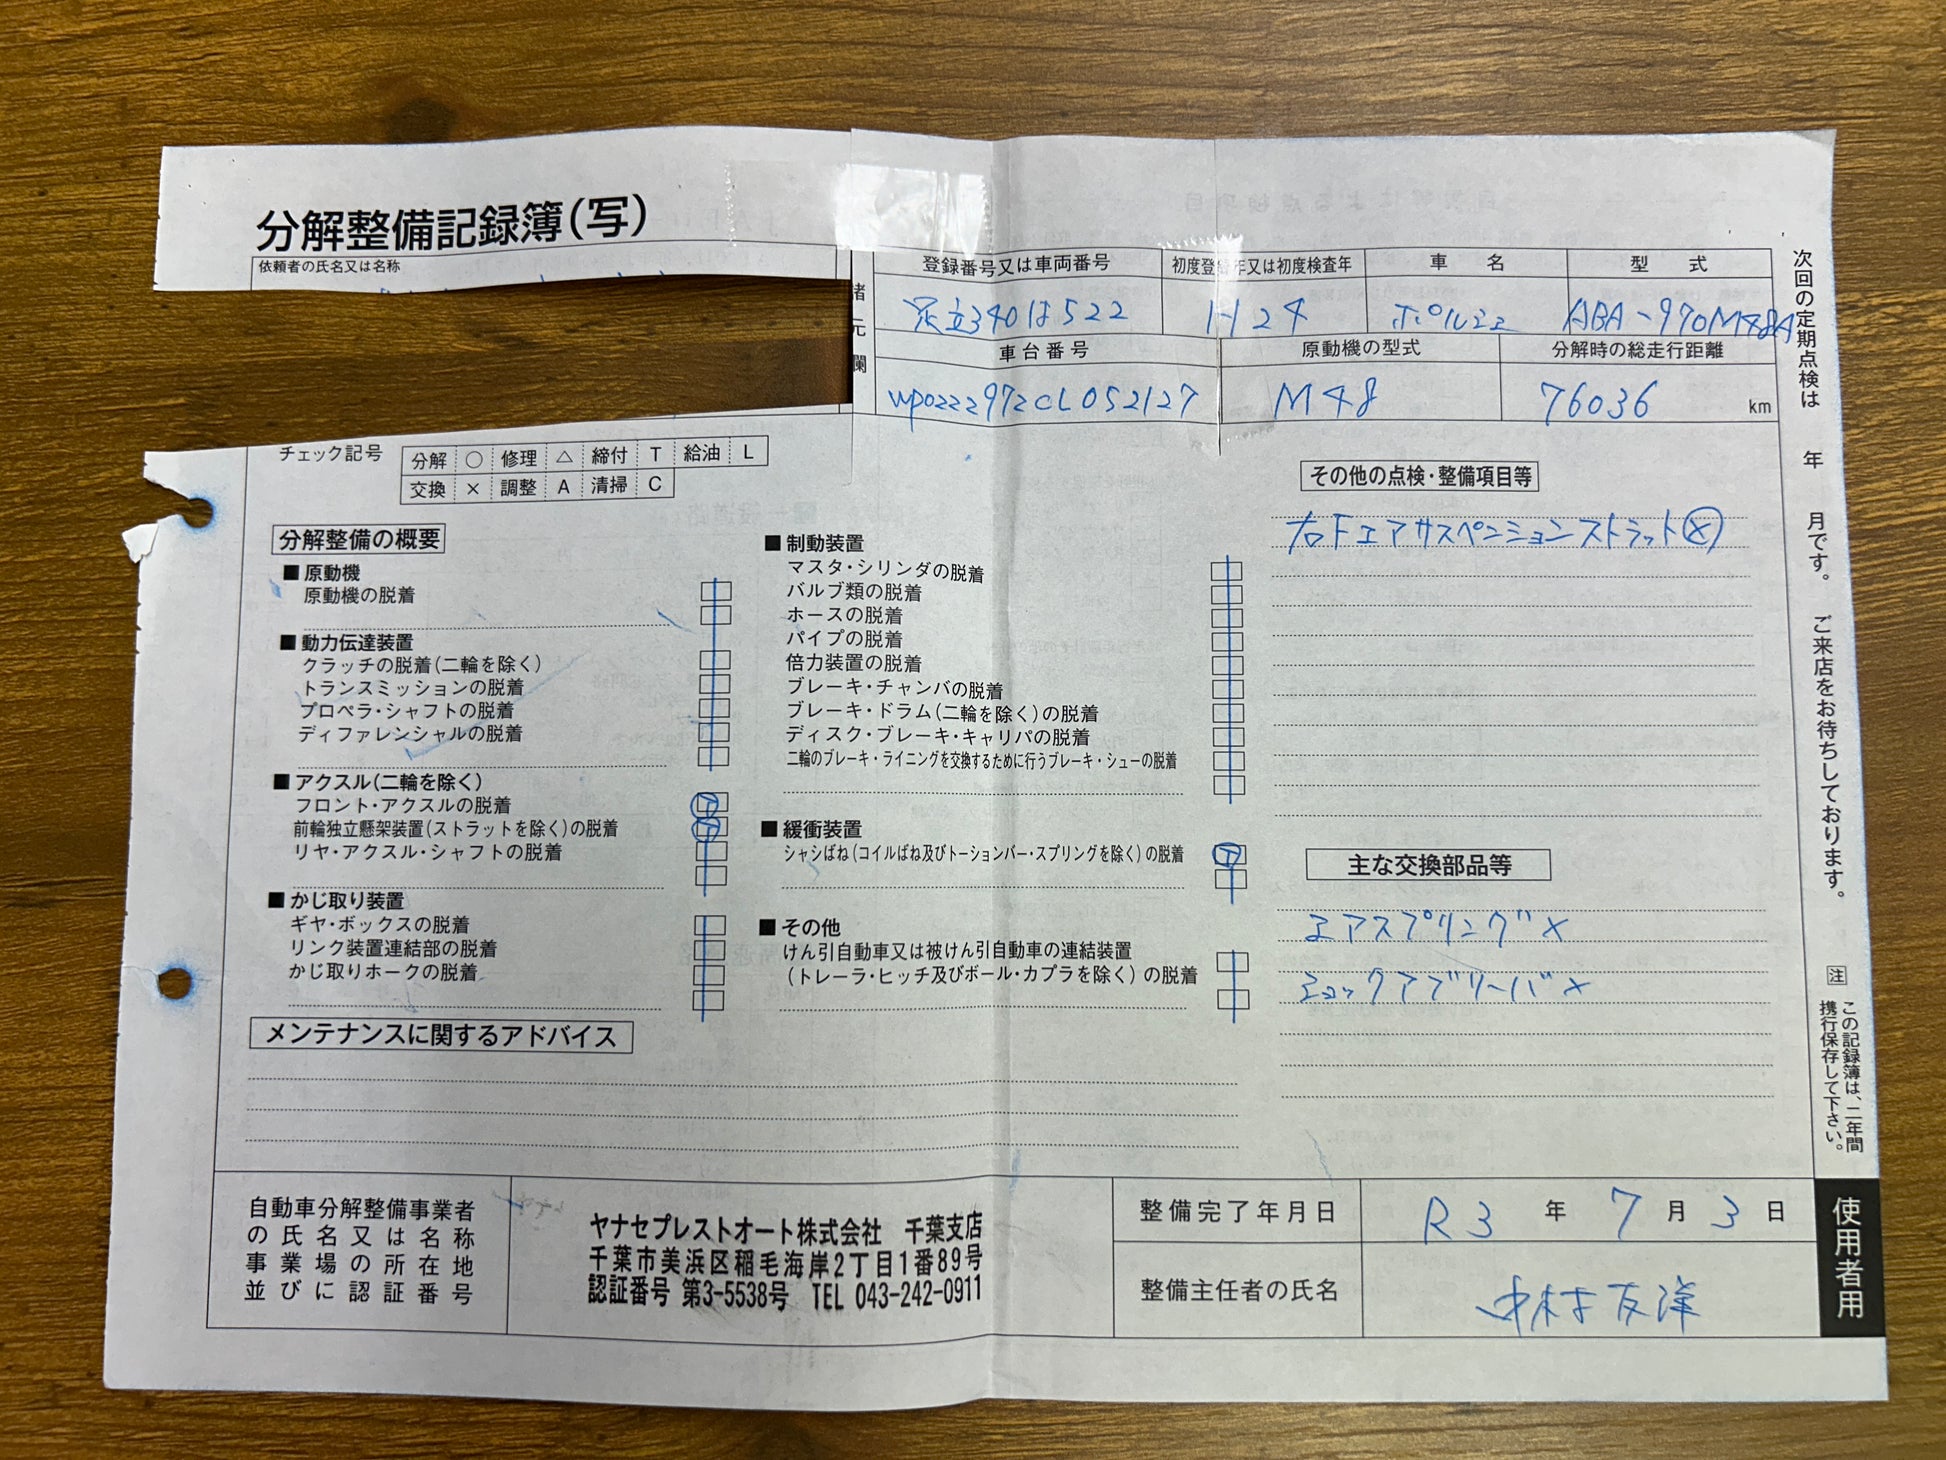 分解整備記録簿(写)
依頼者の氏名又は名称
諸元欄
登録番号又は車両番号 初度登録年又は初度検査年 車名 型式
足立340は522 H24 ポルシェ ABA-970M48A
車台番号 原動機の型式 分解時の総走行距離
WP0ZZZ97ZCL052127 M48 76036 km
チェック記号 分解 ○ 修理 △ 締付 T 給油 L
交換 × 調整 A 清掃 C
分解整備の概要
■ 原動機
原動機の脱着
■ 動力伝達装置
クラッチの脱着(二輪を除く)
トランスミッションの脱着
プロペラ・シャフトの脱着
ディファレンシャルの脱着
■ アクスル(二輪を除く)
フロント・アクスルの脱着 T
前輪独立懸架装置(ストラットを除く)の脱着 T
リヤ・アクスル・シャフトの脱着
■ かじ取り装置
ギヤ・ボックスの脱着
リンク装置連結部の脱着
かじ取りホークの脱着
■ 制動装置
マスタ・シリンダの脱着
バルブ類の脱着
ホースの脱着
パイプの脱着
倍力装置の脱着
ブレーキ・チャンバの脱着
ブレーキ・ドラム(二輪を除く)の脱着
ディスク・ブレーキ・キャリパの脱着
二輪のブレーキ・ライニングを交換するために行うブレーキ・シューの脱着
■ 緩衝装置
シャシばね(コイルばね及びトーションバー・スプリングを除く)の脱着 T
■ その他
けん引自動車又は被けん引自動車の連結装置
(トレーラ・ヒッチ及びボール・カプラを除く)の脱着
その他の点検・整備項目等
右Fエアサスペンションストラット×
主な交換部品等
エアスプリング×
ショックアブソーバ×
メンテナンスに関するアドバイス
自動車分解整備事業者
の氏名又は名称
事業場の所在地
並びに認証番号
ヤナセプレストオート株式会社 千葉支店
千葉市美浜区稲毛海岸2丁目1番89号
認証番号 第3-5538号 TEL 043-242-0911
整備完了年月日 R3年 7月 3日
整備主任者の氏名 中村友洋
次回の定期点検は 年 月です。ご来店をお待ちしております。
注 この記録簿は、二年間
携行保存して下さい。
使用者用